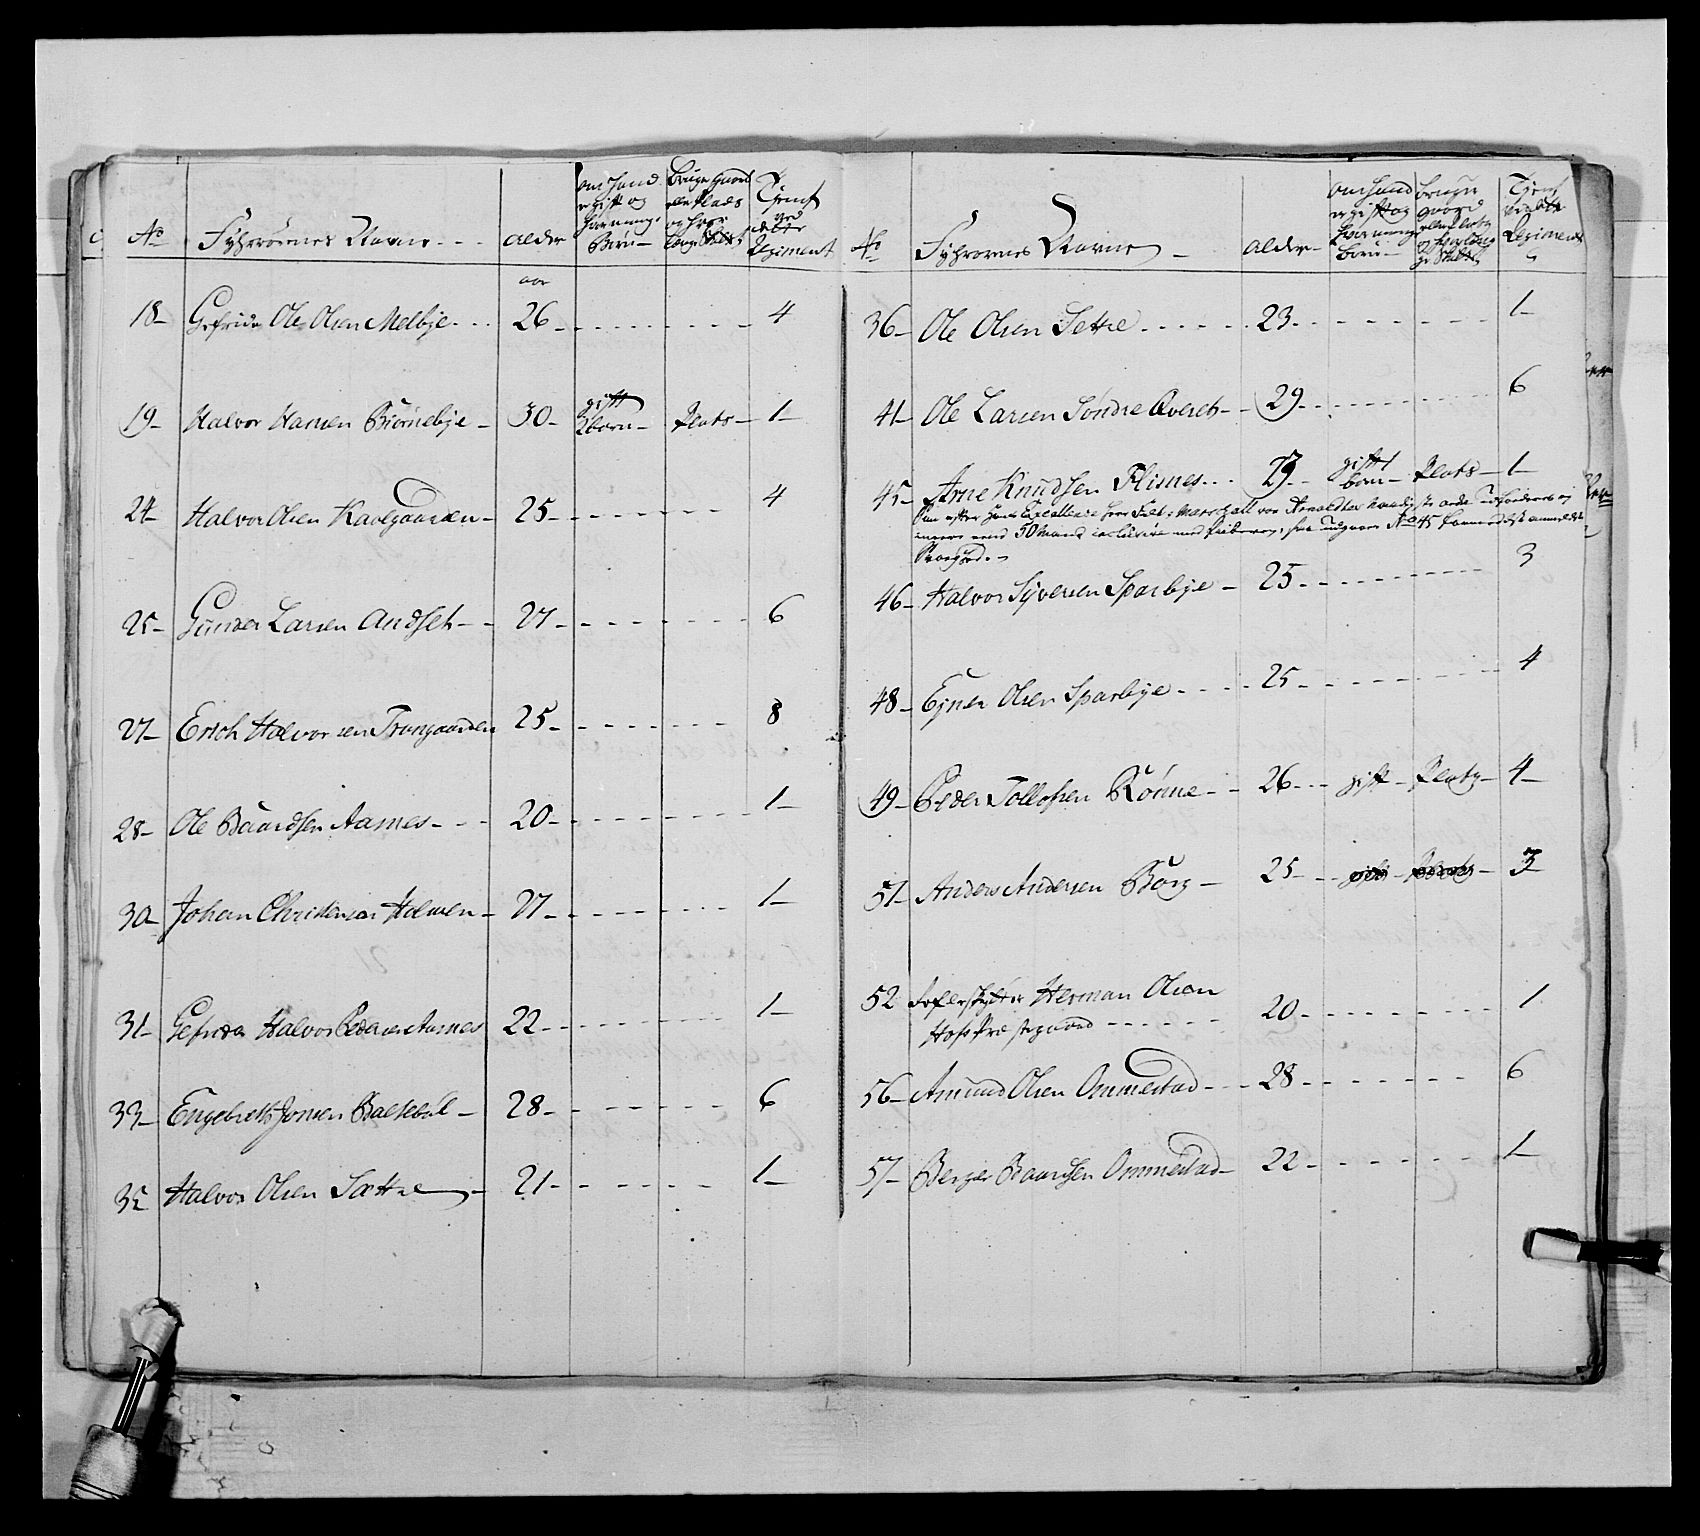 No Fyhrrørnes Navne Alder om hand er gift og hvor mange Børn Bruger Gaard eller Plads Tjent ved Regiment
aar
18 Gefrider Ole Olsen Melbye 26 4
19 Halvor Hansen Biørnebye 30 gift 2 børn Plats 1
24 Halvor Olsen Kavlgaarden 25 4
25 Gunder Larsen Audset 27 6
27 Erich Halvorsen Trongaarden 25 8
28 Ole Baardsen Aarnes 20 1
30 Johan Christensen Holmen 27 1
31 Gefrider Halvor Pedersen Aarnes 22 1
33 Engebreth Jonsen Baltebøl 28 6
35 Halvor Olsen Sættre 21 1
No Fyhrrørnes Navne Alder om hand er gift og hvor mange børn bruger gaard eller Plats Tjent ved Regiment
36 Ole Olsen Settre 23 1
41 Ole Larsen Søndre Qveset 29 6
45 Arne Knudsen Flisnes 29 gift 1 barn Plats 1
efter Hans Excellence Herr Felt-Marschall von Arnoldts
50 Mand inclusive med No 45
46 Halvor Syversen Sparbye 25 3
48 Ejner Olsen Sparbye 25 4
49 Peder Tollofsen Rønne 26 gift Plats 4
51 Anders Andersen Borg 25 3
52 Herman Olsen
Hofs Præstegaard 20 1
56 Amund Olsen Ommestad 28 6
57 Berger Baardsen Ommestad 22 1